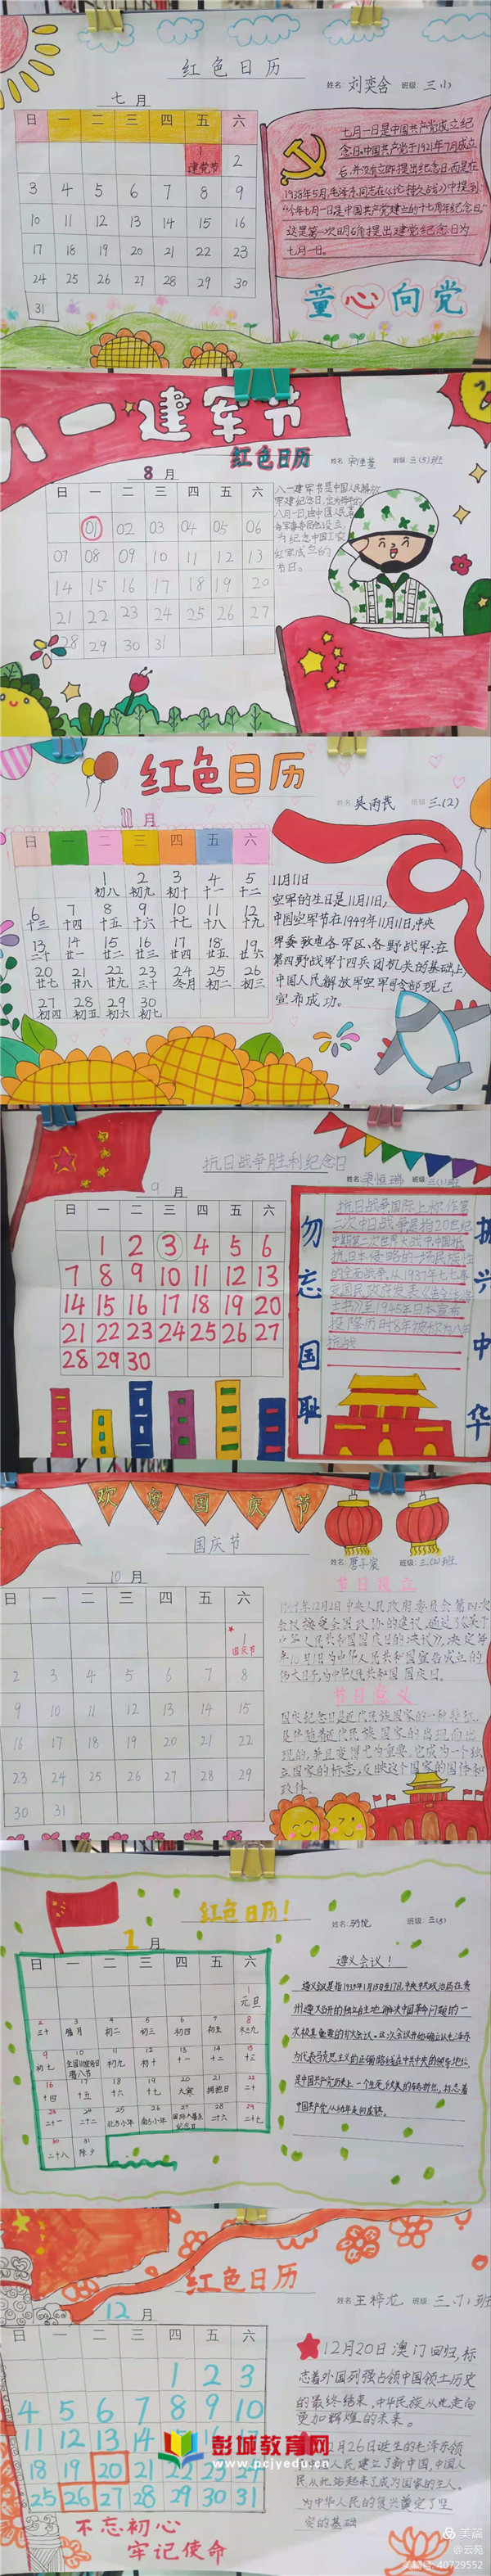 红色日历
姓名: 刘奕含 班级: 三.(1)
七 月
日 一 二 三 四 五 六
1 2
建党节
3 4 5 6 7 8 9
10 11 12 13 14 15 16
17 18 19 20 21 22 23
24 25 26 27 28 29 30
31
七月一日是中国共产党成立纪
念日。中国共产党于1921年7月成立
后,并没有立即提出纪念日。而是在
1938年5月,毛泽东同志在《论持久战》中提到:
“今年七月一日是中国共产党建立的十七周年纪念日。”
这是第一次明确提出建党纪念日为
七月一日。
童心向党
八一建军节
红色日历
班级: 三(5)班
8 月
日 一 二 三 四 五 六
01 02 03 04 05 06
07 08 09 10 11 12 13
14 15 16 17 18 19 20
21 22 23 24 25 26 27
28 29 30 31
八一建军节是中国人民解放
军建军纪念日,定为每年的
八月一日,由中国人民革
命军事委员会设立,
为纪念中国工农
红军成立的
节日。
红色日历
姓名: 吴雨芪 班级: 三.(2)
11 月
日 一 二 三 四 五 六
1 2 3 4 5
初八 初九 初十 十一 十二
6 7 8 9 10 11 12
十三 十四 十五 十六 十七 十八 十九
13 14 15 16 17 18 19
二十 廿一 廿二 廿三 廿四 廿五 廿六
20 21 22 23 24 25 26
廿七 廿八 廿九 三十 冬月 初二 初三
27 28 29 30
初四 初五 初六 初七
11月11日
空军的生日是11月11日,
中国空军节在1949年11月11日,中央
军委致电各军区、各野战军:在
第四野战军十四兵团机关的基础上,
中国人民解放军空军司令部现已
宣布成功。
抗日战争胜利纪念日
姓名: 栾恒瑞 班级: 三(1)班
9 月
日 一 二 三 四 五 六
1 2 3 4 5 6
7 8 9 10 11 12 13
14 15 16 17 18 19 20
21 22 23 24 25 26 27
28 29 30
勿忘国耻
抗日战争,国际上称作第
二次中日战争,是指20世纪
中期第二次世界大战中,中国抵
抗日本侵略的一场民族性
的全面战争。从1937年七七事
至1945年日本宣布
投降历时8年被称为八年
抗战
振兴中华
欢度国庆节
国庆节
姓名: 唐子宸 班级: 三(2)班
10 月
日 一 二 三 四 五 六
1
国庆节
2 3 4 5 6 7 8
9 10 11 12 13 14 15
16 17 18 19 20 21 22
23 24 25 26 27 28 29
30 31
节日设立
1949年12月2日,中央人民政府委员会第四次
会议接受全国政协的建议,通过了《关于
中华人民共和国国庆日的决议》,决定每
年10月1日为中华人民共和国宣告成立的
伟大日子,为中华人民共和国国庆日。
节日意义
国庆纪念日是近代民族国家的一种特征,
是伴随着近代民族国家的出现而出
现的,并且变得尤为重要。它成为一个独
立国家的标志,反映这个国家的国体和
政体。
红色日历!
1 月
日 一 二 三 四 五 六
1
元旦
2 3 4 5 6 7 8
三十 腊月 初二 初三 初四 初五
9 10 11 12 13 14 15
初七 腊八节 初九 初十 十一 十二 十三
16 17 18 19 20 21 22
十四 十五 十六 十七 大寒 拥抱日 二十
23 24 25 26 27 28 29
二十一 二十二 北方小年 南方小年 二十六 二十七
30 31
二十八 除夕
遵义会议!
遵义会议是指1935年1月15日至17日,中共中央政治局在贵
州遵义召开的独立自主地解决中国革命问题的一
次极其重要的扩大会议。这次会议开始确立以毛泽东
为代表马克思主义的正确路线在中共中央的领导地位,
是中国共产党历史上一个生死攸关的转折点,标志着
中国共产党从幼年走向成熟。
红色日历
姓名: 王梓尤 班级: 三.(1)班
12 月
日 一 二 三 四 五 六
1 2 3
4 5 6 7 8 9 10
11 12 13 14 15 16 17
18 19 20 21 22 23 24
25 26 27 28 29 30 31
不忘初心
牢记使命
12月20日澳门回归,标
志着外国列强占领中国领土历史
的最终结束,中华民族从此走向
更加辉煌的未来。
12月26日诞生的毛泽东领
人民建立了新中国,中国人
民从此站起来了成为国家的主人。
为中华人民的复兴奠定了坚
实的基础
彭城教育网
www.pcjyedu.cn
美篇
@云苑